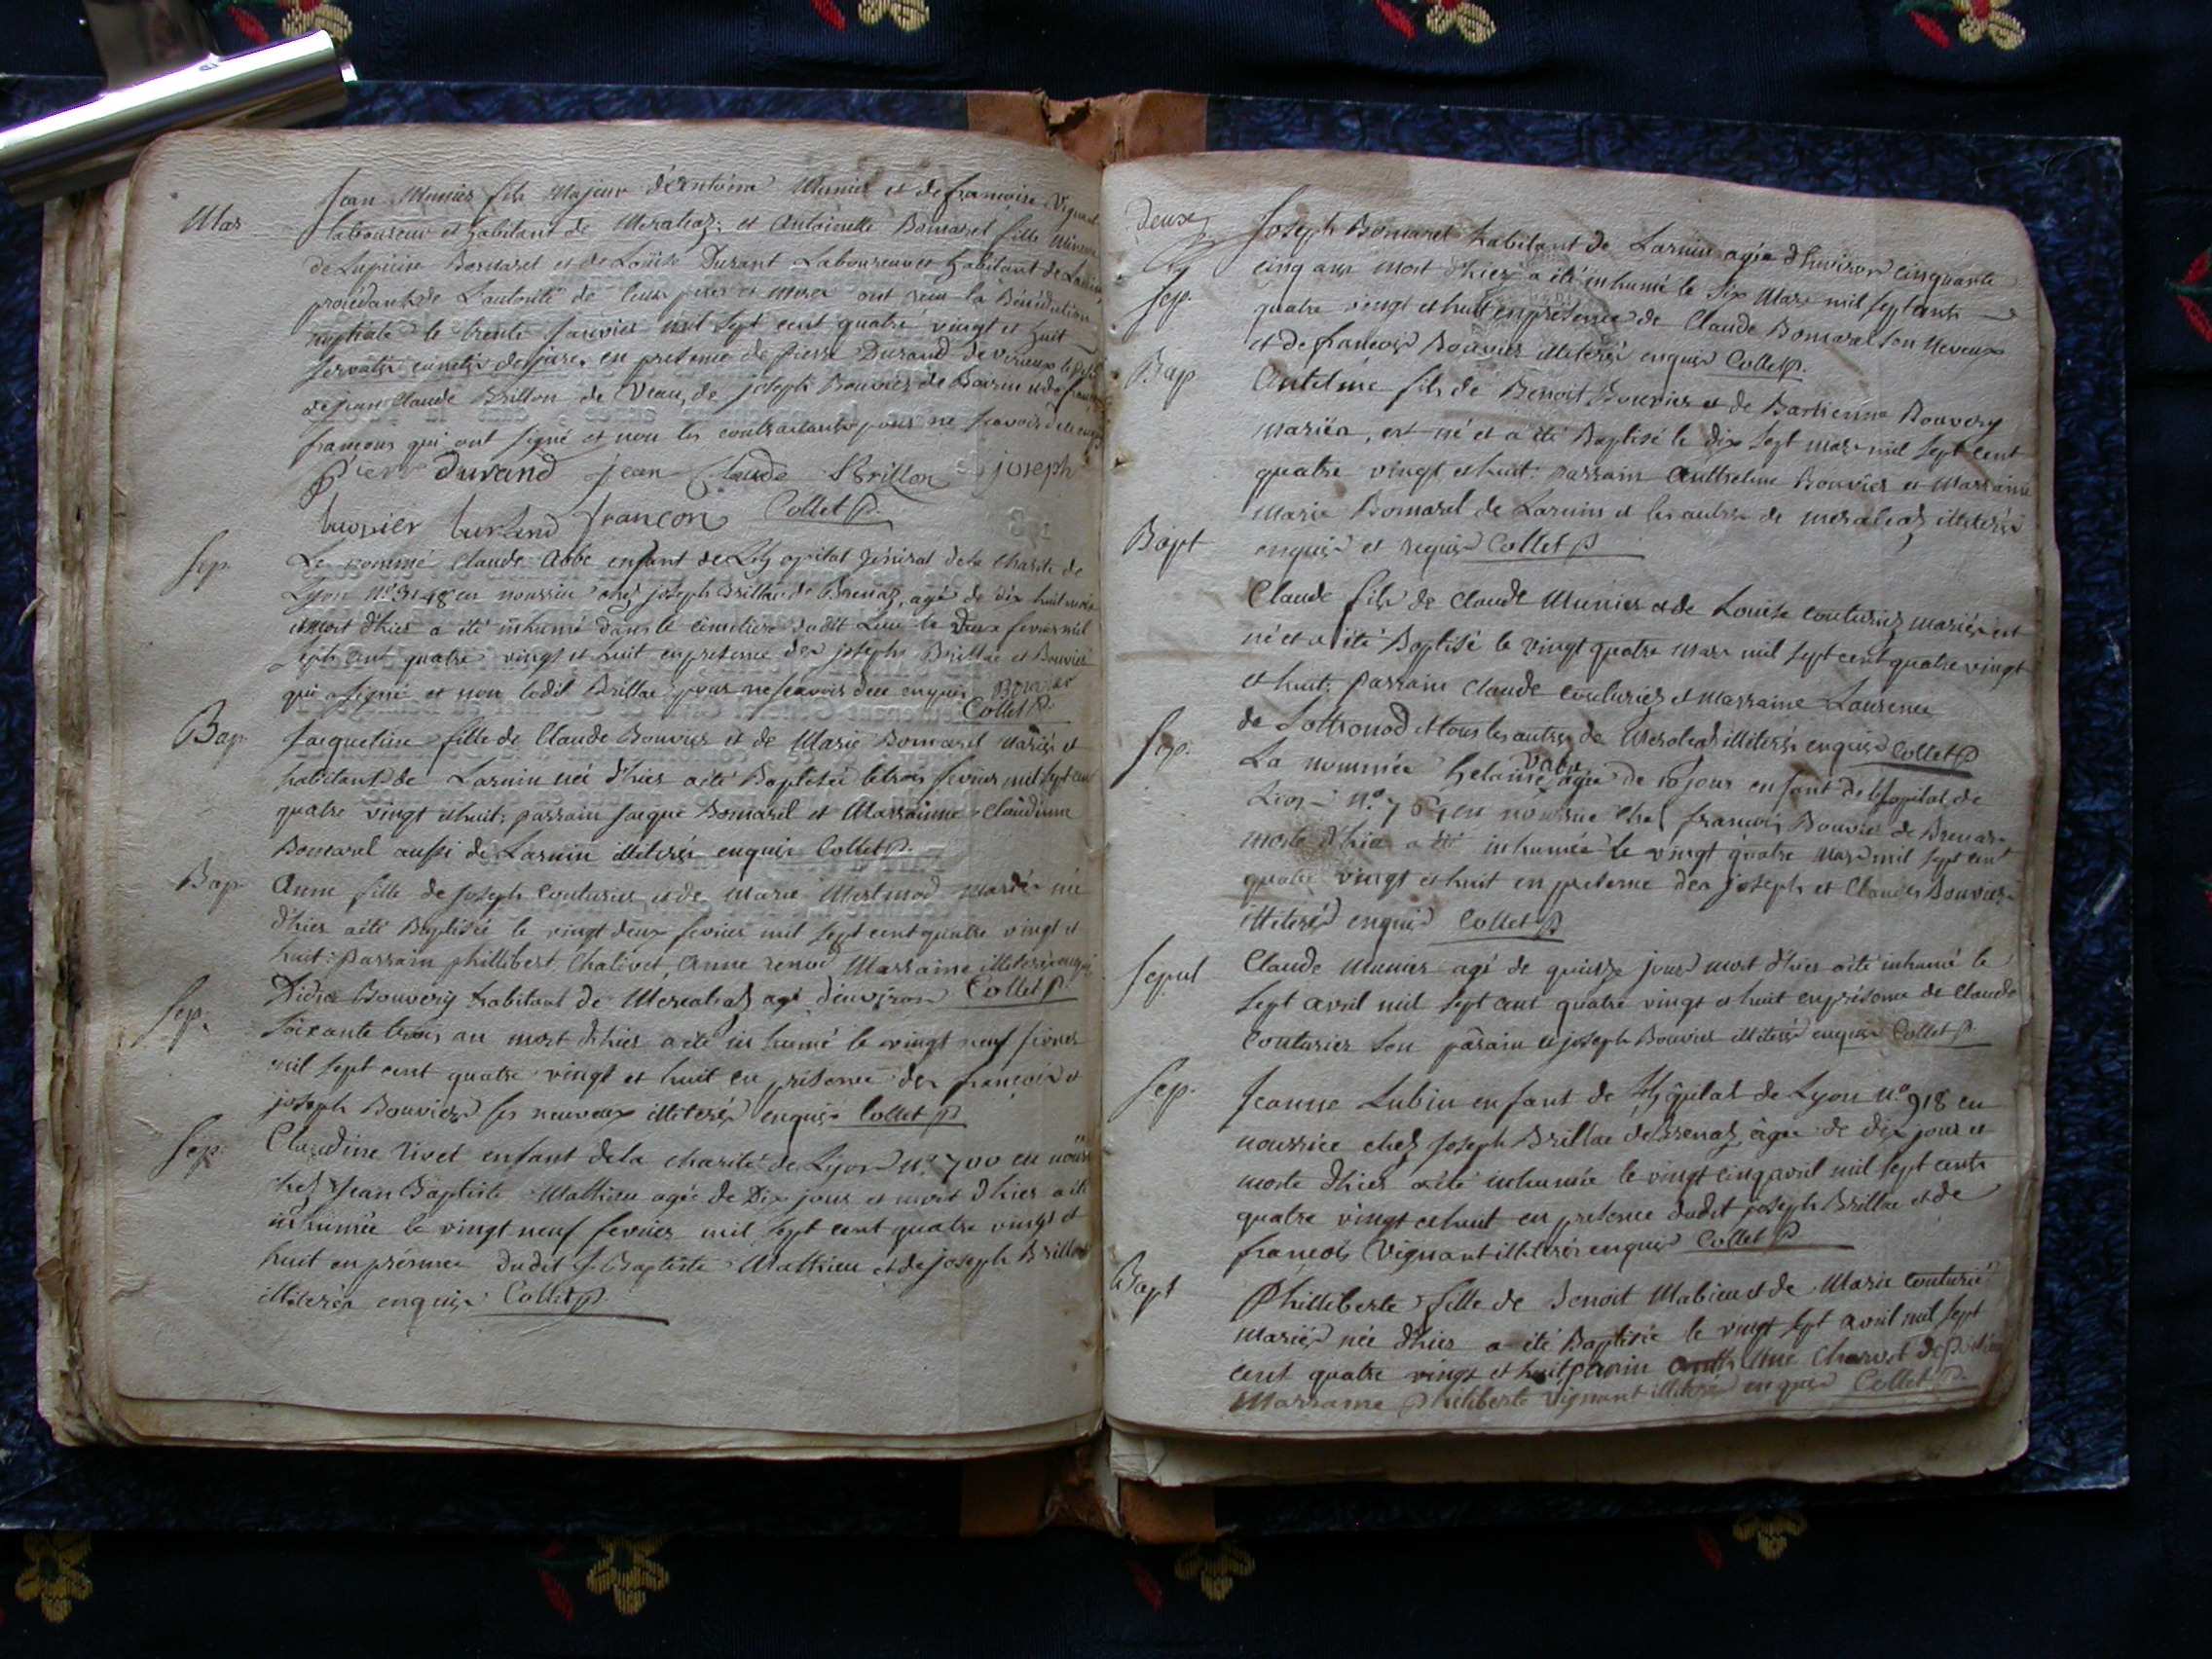 Mar
Jean Munier fils Majeur d'Antoine Munier et de françoise
laboureur et habitant de Meraleaz; et Antoinette Bomarel fille Mineure
de Lupicine Bomarel et de Loüise Durant Laboureur et habitant de
procedants de L'autorité de leurs peres et meres ont reçu la Bénédiction
nuptiale le trente Janvier mil sept cent quatre vingt et huit
servatis cunctis de jure. en presence de pierre Durand de
de jean Claude Brillon de Veau, de joseph Bouvier de
françons qui ont signé et non les contractants pour ne scavoir de ce
pierre durand jean Claude Brillon joseph
françon Collet p.
Sep.
Le nommé Claude Abbe enfant de L'hopital général de la Charité de
Lyon n° 3148 en nourrice chez joseph Brillat de Brenaz, agé de dix huit mois
et mort d'hier a été inhumé dans le cimetiere dudit Lieu le deux fevrier mil
sept cent quatre vingt et huit en presence des joseph Brillat et Bouvier
qui a signé et non ledit Brillat pour ne scavoir de ce enquis Bouvier
Collet p.
Bap.
Jacqueline fille de Claude Bouvier et de Marie Bomarel mariés et
habitants de Larnin née d'hier a été Baptisée le trois fevrier mil sept cent
quatre vingt et huit; parrain Jacque Bomarel et Marrainne Claudinne
Bomarel aussi de Larnin illiterés enquis Collet p.
Bap
Anne fille de joseph Couturier et de Marie mariés née
d'hier a été Baptisée le vingt deux fevrier mil sept cent quatre vingt et
huit: parrain phillibert Chalivet, Anne renod Marraine illiterés enquis
Collet p.
Sep.
Didier Bouvery habitant de Meraleaz agé d'environ
soixante trois an mort d'hier a été inhumé le vingt neuf fevrier
mil sept cent quatre vingt et huit en présence des françois et
joseph Bouvier ses neuveux illiterés enquis Collet p
Sep.
Claudine rivet enfant de la charité de Lyon n° 700 en nourrice
chez Jean Baptiste Mathieu agée de Dix jours et mort d'hier a été
inhumée le vingt neuf fevrier mil sept cent quatre vingt et
huit en présence dudit J. Baptiste Mathieu et de joseph Brillat
illiterés enquis Collet p
deux
Sep.
Joseph Bomarel habitant de Larnin agée d'huiron cinquante
cinq ans mort d'hier a été inhumé le six Mars mil sept cents
quatre vingt et huit en présence de Claude Bomarel son Neveux
et de françois Bouvier illiterés enquis Collet p.
Bap
Antelme fils de Benoit Bouvier et de Bartienne Bouvery
mariés, est né et a été Baptisé le dix sept mars mil sept cent
quatre vingt et huit: parrain Anthelme Bouvier et Marraine
Marie Bomarel de Larnin et les autres de meraleaz illiterés
enquis et requis Collet p
Bapt
Claude fils de Claude Munier et de Louise couturier mariés est
né et a été Baptisé le vingt quatre mars mil sept cent quatre vingt
et huit; parrain Claude couturier et marraine Laurence
de Sottonod et tous les autres de Meraleaz illiterés enquis Collet p
Sep.
La nommée helaine agée de 10 jour enfant de L'hopital de
Lion n° en nourrice chez françois Bouvie de Brenaz
morte d'hier a été inhumée le vingt quatre Mars mil sept cent
quatre vingt et huit en presence des joseph et Claude Bouvier
illiterés enquis Collet p
Sepul
Claude Munier agé de quinze jours mort d'hier a été inhumé le
sept avril mil sept cent quatre vingt et huit en présence de Claude
Couturier son parain et joseph Bouvier illiterés enquis Collet p.
Sep.
Jeanne Lubin enfant de L'hôpital de Lyon n° 918 en
nourrice chez Joseph Brillat de Brenaz, agée de dix jour et
morte d'hier a été inhumée le vingt cinq avril mil sept cents
quatre vingt et huit en presence dudit joseph Brillat et de
françois Vignant illiterés enquis Collet p
Bapt
Philliberte fille de Benoit Mabieu et de Marie Couturié
mariés née d'hier a été Baptisée le vingt sept avril mil sept
cent quatre vingt et huit parain Charvet
Marrainne Philiberte Vignant illiterés enquis Collet p.